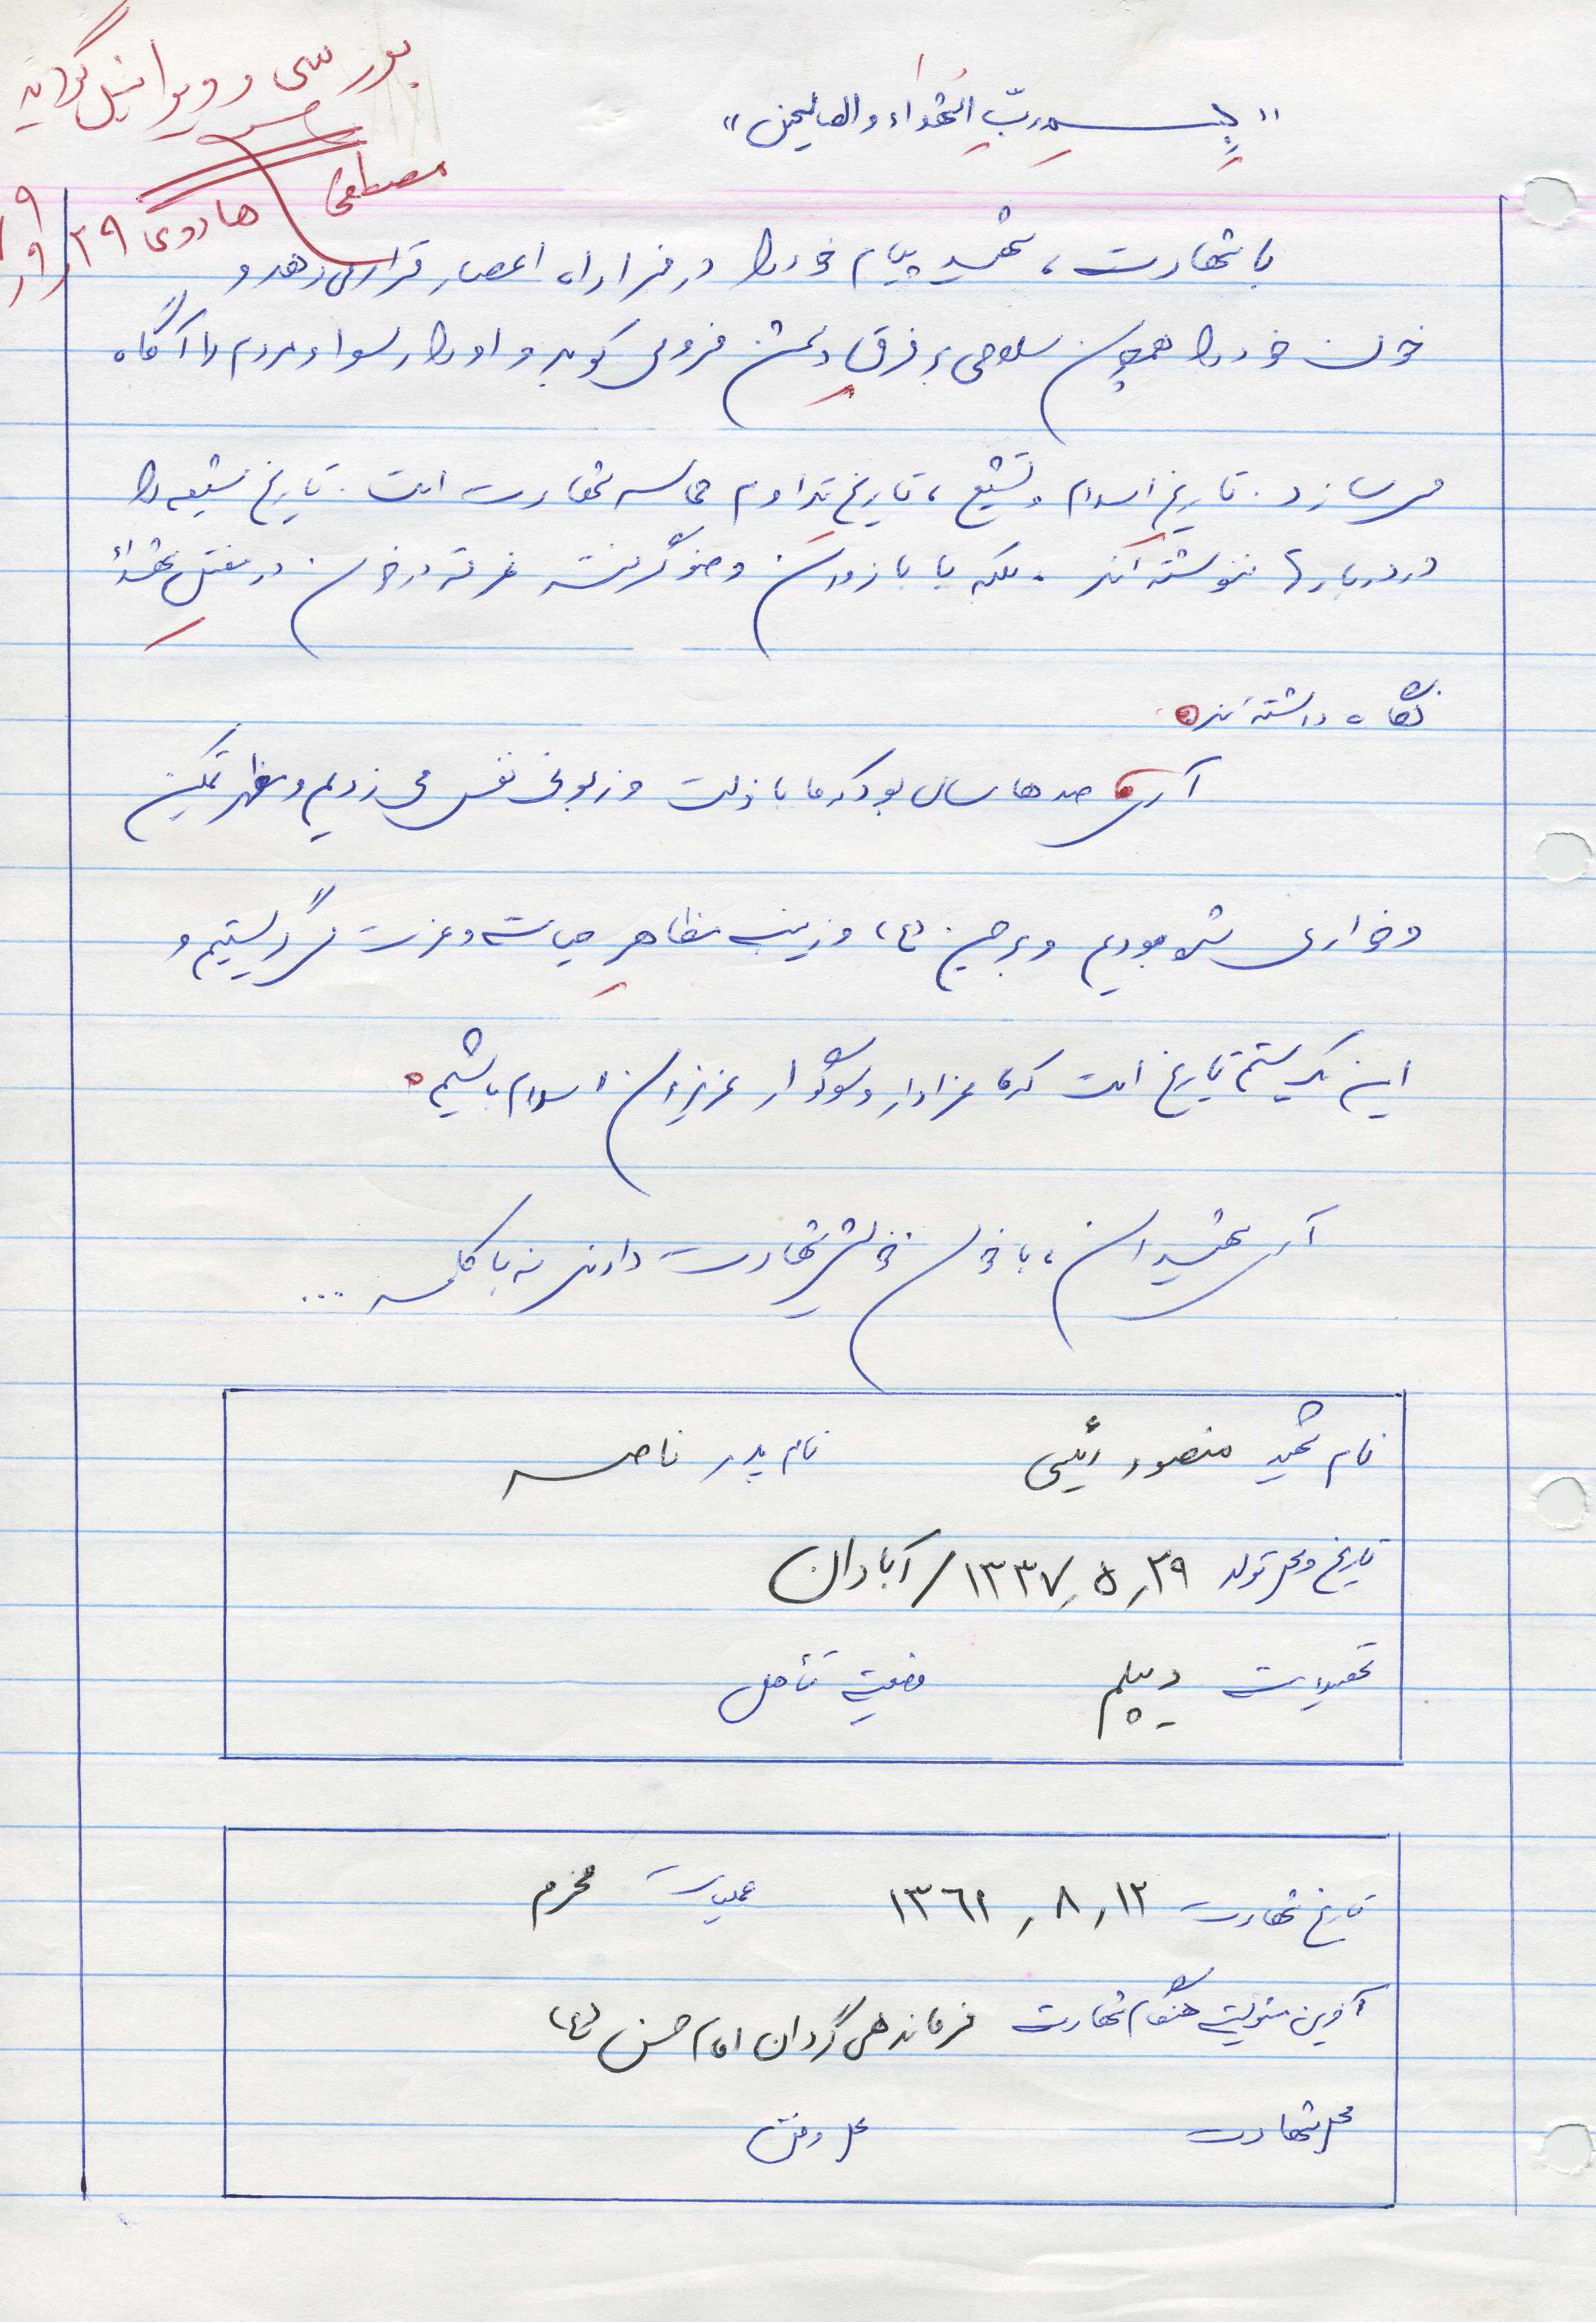 بررسی و ویرایش گردید
مصطفی هادوی ۲۹
«بسم ربّ الشهداء والصالحین»
با شهادت، شهید پیام خود را در فرا راه اعصار قرار می‌دهد و
خون خود را همچون سلاحی بر فرق دشمن فرو می کوبد و او را رسوا و مردم را آگاه
می سازد. تاریخ اسلام و تشیع، تاریخ تداوم حماسه شهادت است. تاریخ شیعه را
در دربارها ننوشته اند. بلکه با بازوان وضو گرفته غرقه در خون در مقتل شهداء
نگاه داشته اند.
آری صدها سال بود که ما با ذلت و زبونی نفس می زدیم و مظهر تمکین
و خواری شده بودیم و بر حسین (ع) و زینب مظاهر حیات و عزت می گریستیم و
این تاریخ است که ما عزادار و سوگوار عزیزان اسلام باشیم.
آری شهیدان، با خون خویش شهادت دادند نه با کلمه ...
نام شهید منصور رئیسی نام پدر ناصر
تاریخ و محل تولد ۲۹ر۵ر۱۳۳۷/آبادان
تحصیلات دیپلم وضعیت تأهل
تاریخ شهادت ۱۲ر۸ر۱۳۶۱ عملیات محرم
آخرین مسئولیت هنگام شهادت فرماندهی گردان امام حسن (ع)
محل شهادت محل دفن